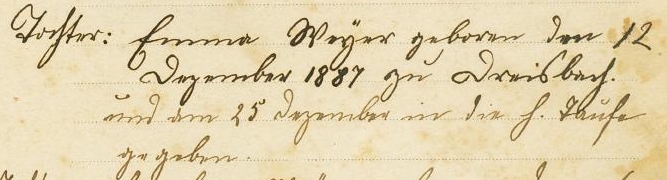 Tochter: Emma Weyer geboren den 12
Dezember 1887 zu Dreisbach.
und am 25 Dezember in die h. Taufe
gegeben.